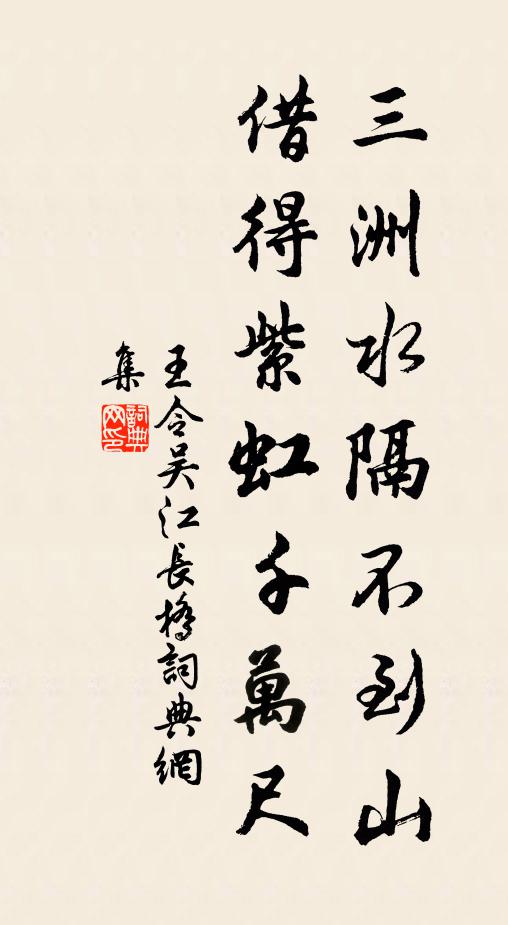 三洲水隔不到山
借得紫虹千萬尺
王令吴江長橋詞典網
集
詞典
网印